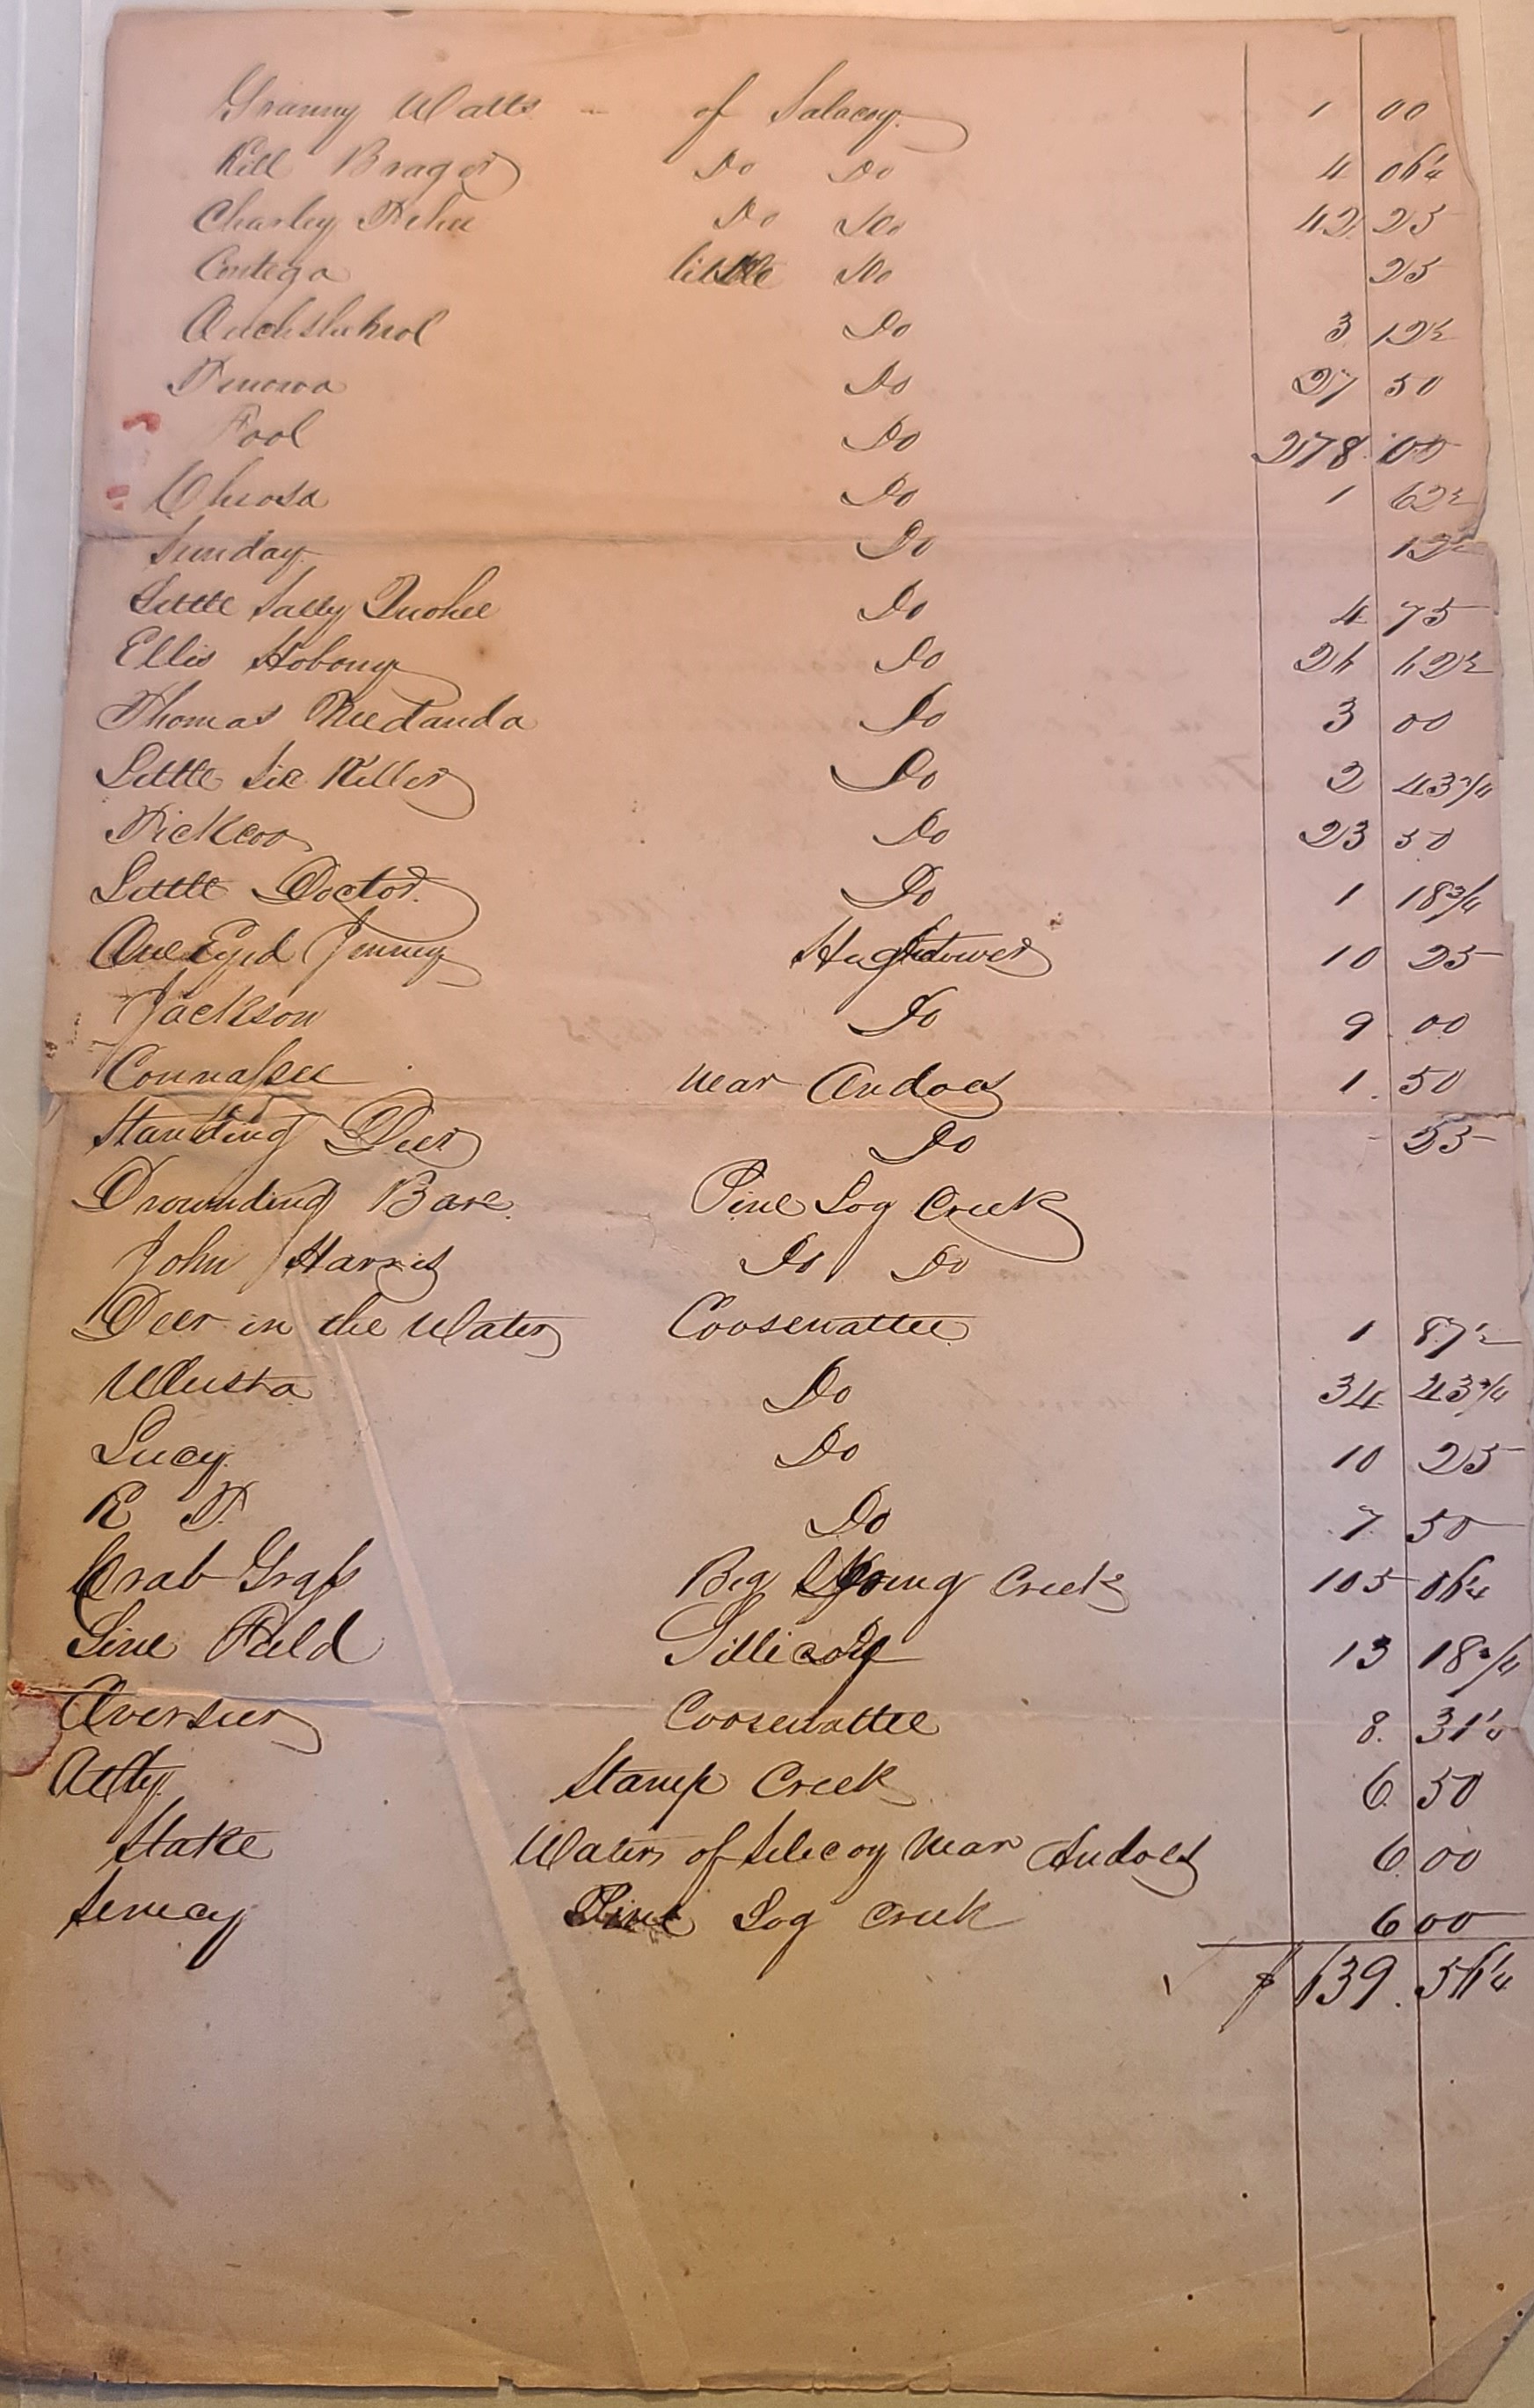 Granny Watts - of Salacoy 1 00
Kill Brager Do Do 4 06¼
Charley Tehee Do Do 42 25
Contega little Do 25
Do 3 12½
Tenowa Do 27 50
Fool Do 278 00
Do 1 62½
Sunday Do 12½
Little Sally Do 4 75
Ellis Do 26 62½
Thomas Do 3 00
Little Six Killer Do 2 43¾
Do 23 50
Little Doctor Do 1 18¾
One Eyed Jenney Hightower 10 25
Jackson Do 9 00
Connassee Near Audoes 1 50
Standing Deer Do 25
Drownding Bare Pine Log Creek
John Harris Do Do
Deer in the Water Coosewattee 1 87½
Do 34 43¾
Lucy Do 10 25
R T Do 7 50
Crab Grass Big Spring Creek 105 06¼
Line Field 13 18¾
Overseer Coosewattee 8 31¼
Stamp Creek 6 50
Stake Waters of Selecoy Near Audoes 6 00
Pine Log Creek 6 00
$ 639 . 56¼